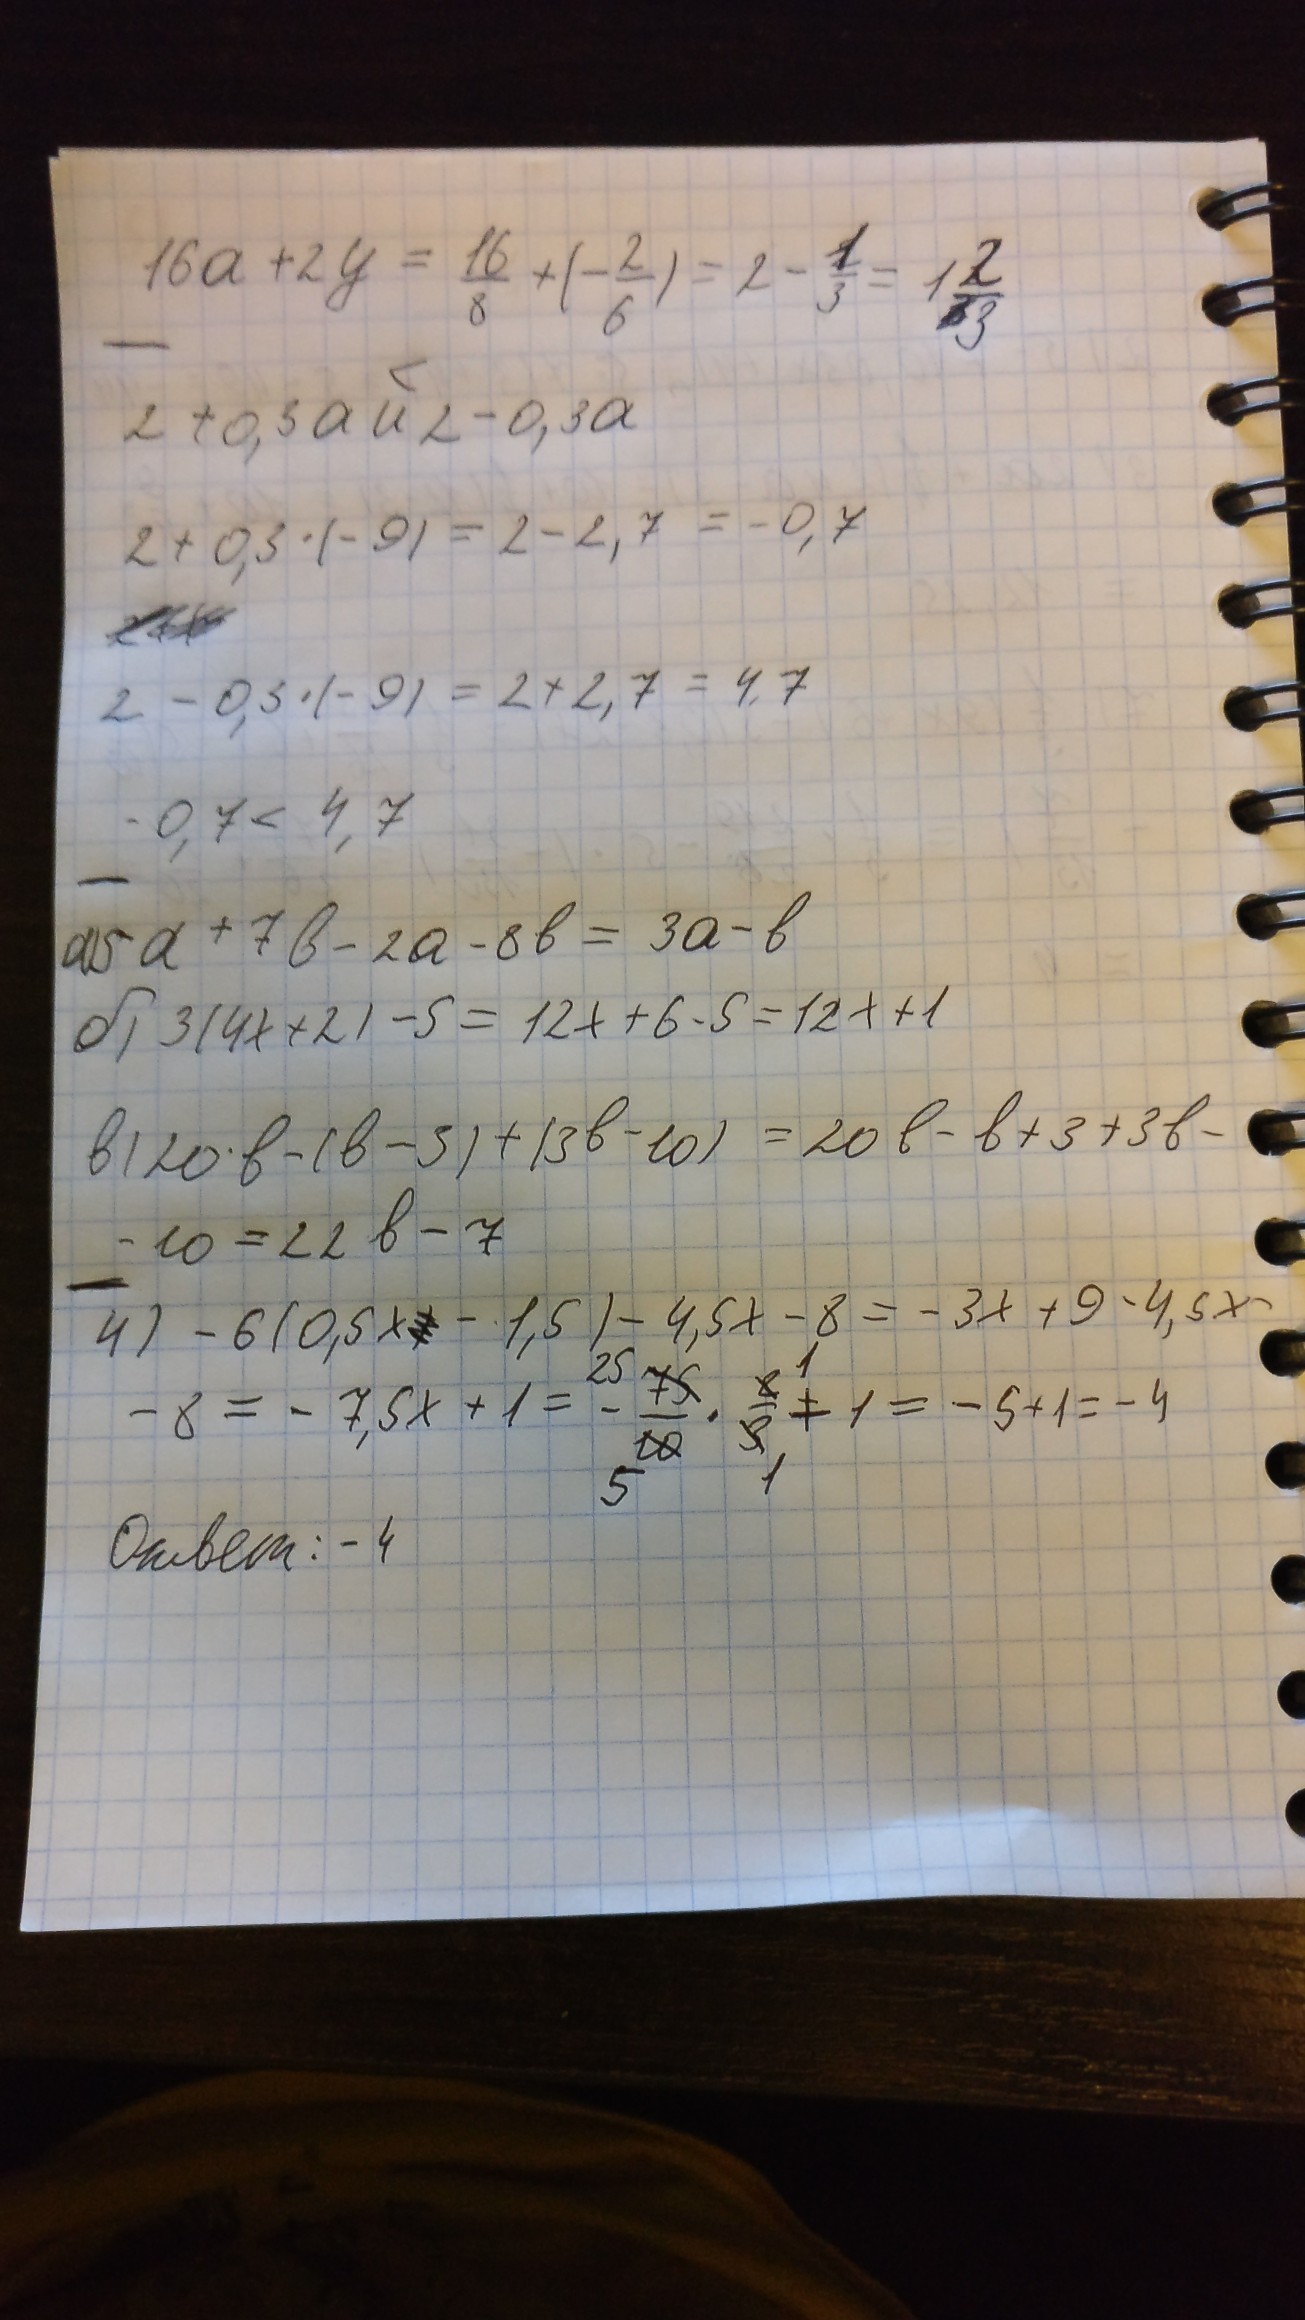 16a + 2y = 16/8 + (- 2/6) = 2 - 1/3 = 1 2/3
<
2 + 0,3a и 2 - 0,3a
2 + 0,3 · (-9) = 2 - 2,7 = -0,7
2 - 0,3 · (-9) = 2 + 2,7 = 4,7
-0,7 < 4,7
а) 5a + 7b - 2a - 8b = 3a - b
б) 3(4x + 2) - 5 = 12x + 6 - 5 = 12x + 1
в) 20·b - (b - 3) + (3b - 10) = 20b - b + 3 + 3b -
- 10 = 22b - 7
4) - 6(0,5x - 1,5) - 4,5x - 8 = - 3x + 9 - 4,5x -
- 8 = - 7,5x + 1 = - 75/10 · 2/3 + 1 = - 5 + 1 = - 4
Ответ: - 4